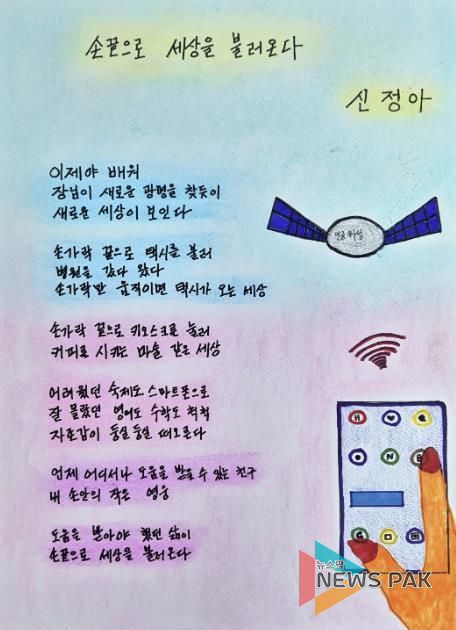 손끝으로 세상을 불러온다
신정아
이제야 배워
장님이 새로운 광명을 찾듯이
새로운 세상이 보인다
손가락 끝으로 택시를 불러
병원을 갔다 왔다
손가락만 움직이면 택시가 오는 세상
인공위성
손가락 끝으로 키오스크를 눌러
커피를 시키는 마술 같은 세상
어려웠던 숙제도 스마트폰으로
잘 몰랐던 영어도 수학도 척척
자존감이 둥실둥실 떠오른다
언제 어디서나 도움을 받을 수 있는 친구
내 손안의 작은 영웅
도움을 받아야 했던 삶이
손끝으로 세상을 불러온다
뉴스팍
NEWS PAK